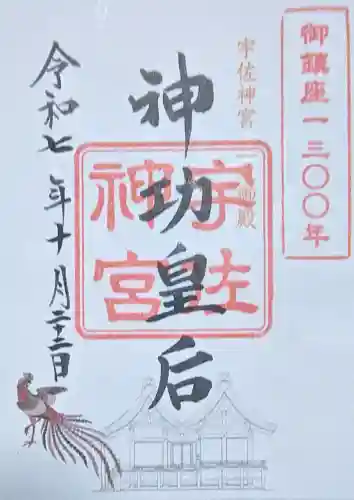 御鎮座一三〇〇年
宇佐神宮 三御殿
神功皇后
宇佐神宮
令和七年十月二十二日